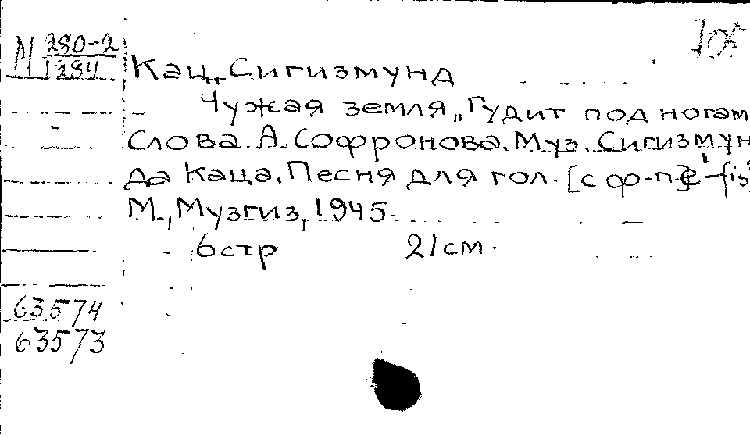 М 280-2
1284
105
Кац, Сигизмунд
Чужая земля „Гудит под ногам
Слова А. Софронова. Муз. Сигизмун
да Каца. Песня для гол. [с ф-п]
М., Музгиз, 1945.
6 стр 21 см.
63574
63573